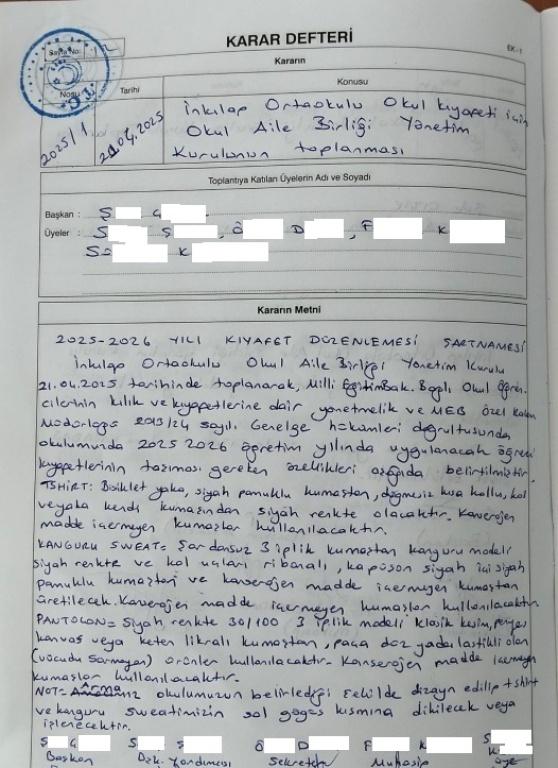 KARAR DEFTERİ
EK-1
Sayfa No:
Kararın
Nosu
Tarihi
Konusu
2025/1
21.04.2025
İnkılap Ortaokulu Okul kıyafeti için
Okul Aile Birliği Yönetim
Kurulunun toplanması
Toplantıya Katılan Üyelerin Adı ve Soyadı
Başkan : Ş
Üyeler : S Ş , Ö D , F K
K
Kararın Metni
2025-2026 YILI KIYAFET DÜZENLEMESİ ŞARTNAMESİ
İnkılap Ortaokulu Okul Aile Birliği Yönetim Kurulu
21.04.2025 tarihinde toplanarak, Milli EğitimBak. Bağlı Okul Öğren-
cilerinin kılık ve kıyafetlerine dair yönetmelik ve MEB özel kalem
Müdürlüğü 2013/24 sayılı Genelge hükümleri doğrultusunda
okulumunda 2025 2026 öğretim yılında uygulanacak öğrenci
kıyafetlerinin taşıması gereken özellikleri aşağıda belirtilmiştir.
TSHİRT: Bisiklet yaka, siyah pamuklu kumaştan, düğmesiz kısa kollu, kol
ve yaka kendi kumaşından siyah renkte olacaktır. Kanserojen
madde içermeyen kumaşlar kullanılacaktır.
KANGURU SWEAT= Şardonsuz 3 iplik kumaştan kanguru modeli
siyah renkte ve kol uçları ribanalı, kapüşon siyah içi siyah
pamuklu kumaştan ve kanserojen madde içermeyen kumaştan
üretilecek. Kanserojen madde içermeyen kumaşlar kullanılacaktır.
PANTOLON= Siyah renkte 30/100 3 iplik modeli klasik kesim, penye,
kanvas veya keten likralı kumaştan, paça düz yada lastikli olan
(vücudu sarmayan) ürünler kullanılacaktır. Kanserojen madde içermeyen
kumaşlar kullanılacaktır.
NOT= Arma okulumuzun belirlediği şekilde dizayn edilip tshirt
ve kanguru sweatimizin sol göğüs kısmına dikilecek veya
işlenecektir.
Ş S Ş Ö D F K S
Başkan Bşk. Yardımcısı Sekreter Muhasip Üye